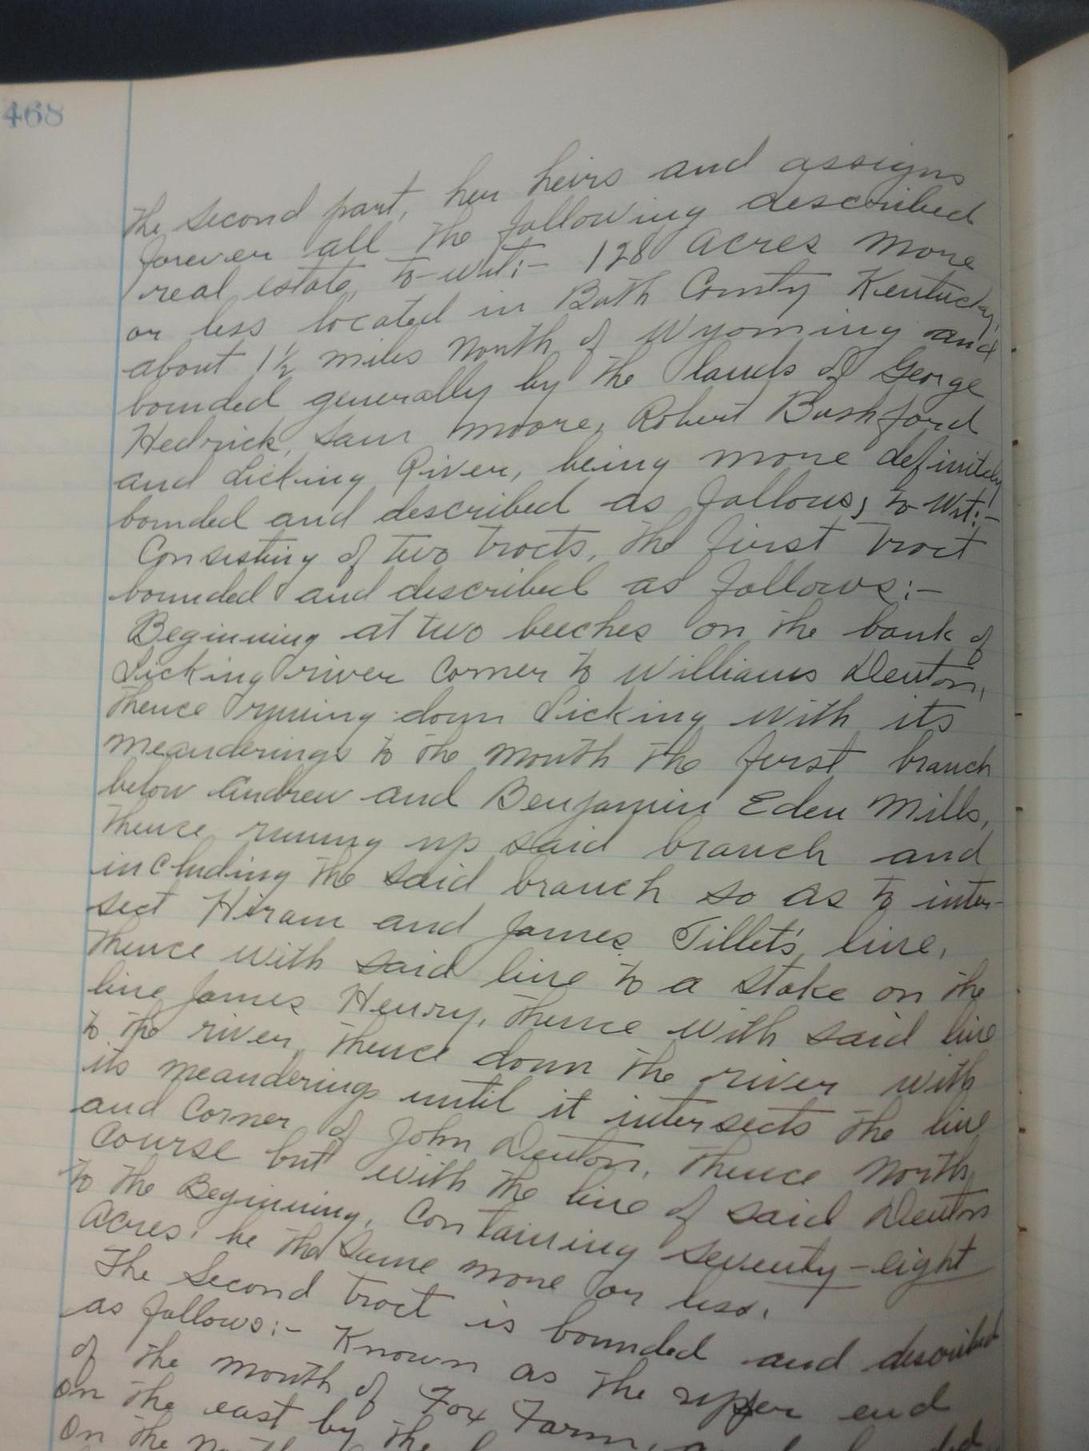 468
the second part, her heirs and assigns
forever all the following described
real estate, to-wit:- 128 acres more
or less located in Bath County Kentucky,
about 1½ miles North of Wyoming and
bounded generally by the lands of George
Hedrick, Sam Moore, Robert Bashford
and Licking River, being more definitely
bounded and described as follows, to-wit:-
Consisting of two tracts, the first tract
bounded and described as follows:-
Beginning at two beeches on the bank of
Licking river corner to Williams Denton,
thence running down Licking with its
meanderings to the mouth the first branch
below Andrew and Benjamin Eden Mills,
thence running up said branch and
including the said branch so as to inter-
sect Hiram and James Tillet's line,
thence with said line to a stake on the
line James Henry, thence with said line
to the river, thence down the river with
its meanderings until it intersects the line
and corner of John Denton, thence North
course but with the line of said Denton
to the Beginning, Containing seventy-eight
Acres, be the same more or less.
The second tract is bounded and described
as follows:- Known as the upper end
of the mouth of Fox Farm,
on the east by the
on the North